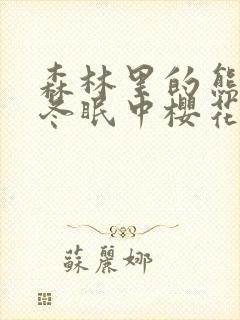 森林里的熊
冬眠中樱花
蘇麗娜